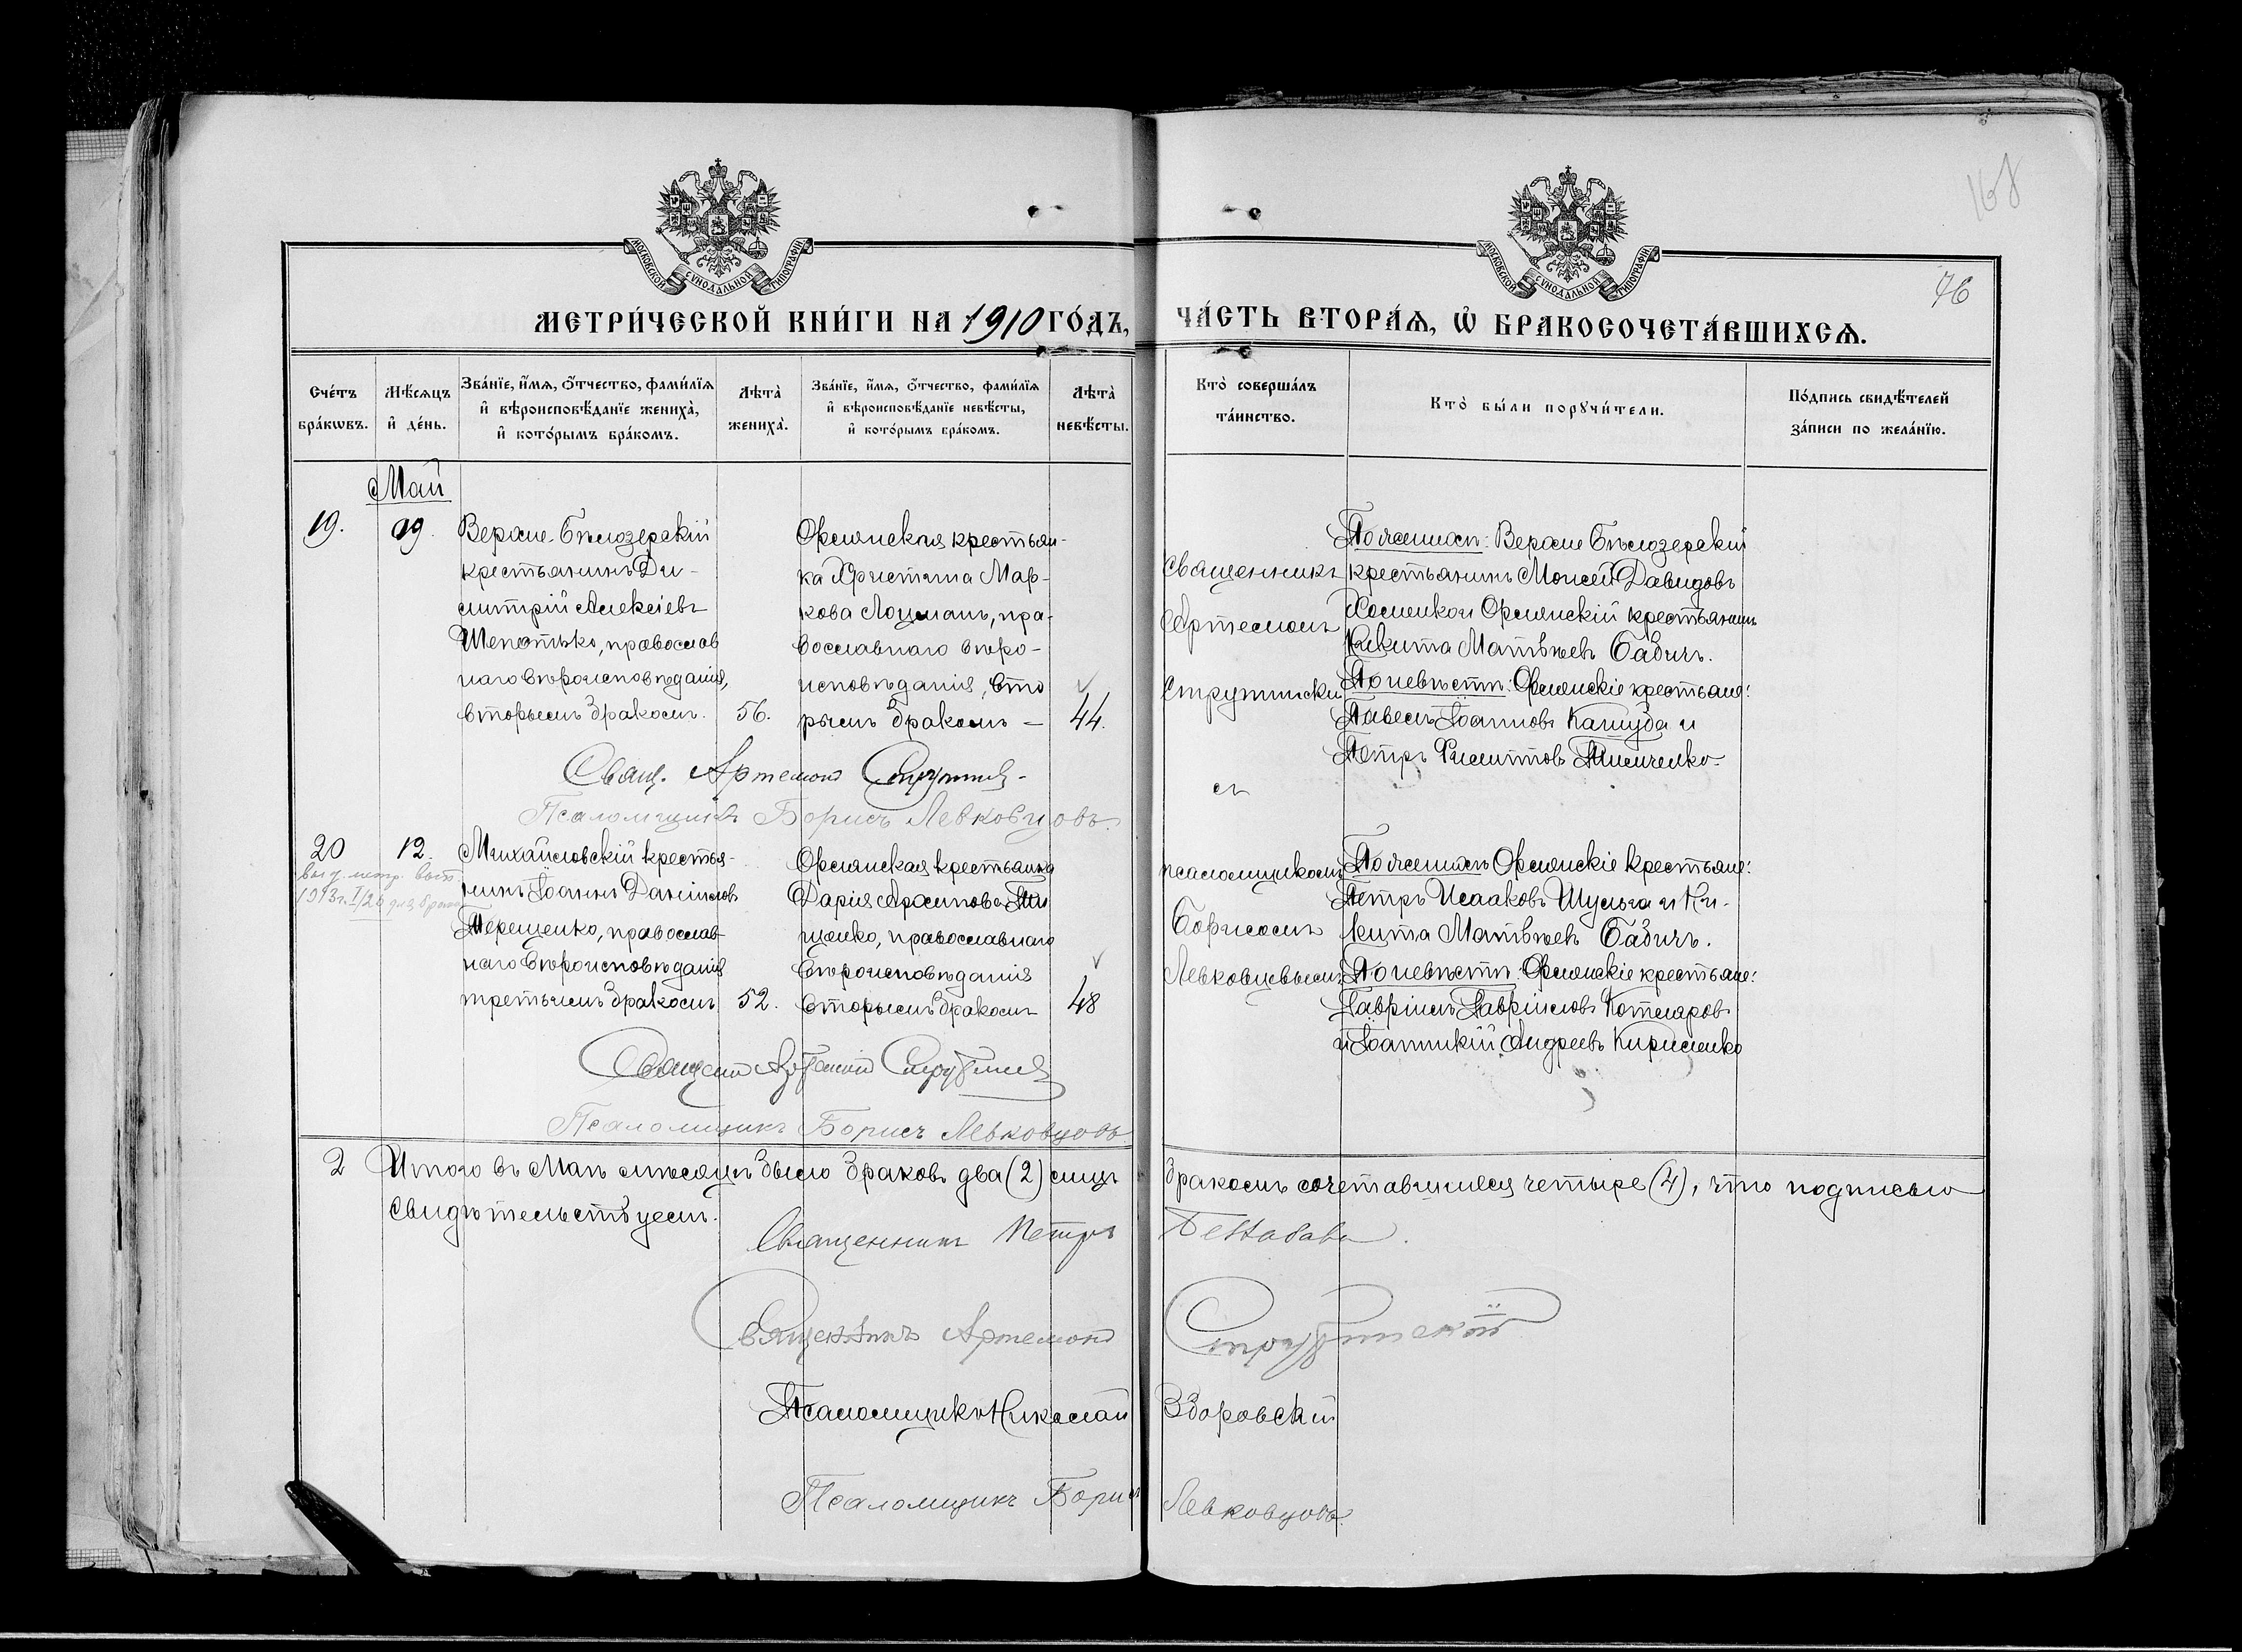 168
76
МОСКОВСКОЙ СѴНОДАЛЬНОЙ ТИПОГРАФІИ
МОСКОВСКОЙ СѴНОДАЛЬНОЙ ТИПОГРАФІИ
МЕТРИ́ЧЕСКОЙ КНИ́ГИ НА 1910 ГО́ДЪ,
ЧА́СТЬ ВТОРА́Ѧ, Ѡ҆ БРАКОСОЧЕТА́ВШИХСѦ.
Сче́тъ
бра́кѡвъ.
Мѣ́сѧцъ
и҆ де́нь.
Зва́нїе, и҆́мѧ, ѻ҆́тчество, фами́лїѧ
и҆ вѣроисповѣ́данїе жениха̀,
и҆ кото́рымъ бра́комъ.
Лѣта̀
жениха̀.
Зва́нїе, и҆́мѧ, ѻ҆́тчество, фами́лїѧ
и҆ вѣроисповѣ́данїе невѣ́сты,
и҆ кото́рымъ бра́комъ.
Лѣта̀
невѣ́сты.
Кто̀ соверша́лъ
та́инство.
Кто̀ бы́ли порꙋчи́тели.
По́дпись свидѣ́телей
за́писи по жела́нїю.
Май
19.
Верхне-Бѣлозерскій
крестьянинъ Ди-
митрій Алексіевъ
Шепотько, православ
наго вѣроисповѣданія,
вторымъ бракомъ.
56.
Орлянская крестьян-
ка Христина Мар-
кова Лоцманъ, пра-
вославнаго вѣро-
исповѣданія, вто
рымъ бракомъ —
44.
Священникъ
Артемонъ
Струтински
съ
псаломщикомъ
Борисомъ
Левковцевымъ
По женихѣ: Верхне Бѣлозерскій
крестьянинъ Моисей Давидовъ
Орлянскій крестьянинъ
Никита Матѣѣевъ Бабичъ.
По невѣстѣ: Орлянскіе крестьяне:
Павелъ Іоанновъ Кашуба и
Петръ Филиттовъ
Свящ. Артемонъ Струтинск-
Псаломщикъ Борисъ Левковцовъ.
20
12.
1913 г. I/26 для брака
Михайловскій крестья-
нинъ Іоаннъ Даніиловъ
Терещенко, православ
наго вѣроисповѣданія
третьимъ бракомъ
52.
Орлянская крестьянка
Дарія
щенко, православнаго
вѣроисповѣданія
вторымъ бракомъ
48
По женихѣ Орлянскіе крестьяне:
Петръ Исааковъ Шульга и Ни-
кита Матѣѣевъ Бабичъ.
По невѣстѣ: Орлянскіе крестьяне:
Гавріилъ Гавріиловъ Котляровъ
и Іоанникій Андреевъ Кириленко
Священ Артемонъ Струтинск
Псаломщикъ Борисъ Левковцовъ
2 Итого въ Маѣ мѣсяцѣ было браковъ два (2) симъ бракомъ сочетавшихся четыре (4), что подписью
свидѣтельствуемъ.
Священникъ Петръ
Священникъ Артемонъ Струтинскій
Псаломщикъ Николай Здоровскій
Псаломщикъ Борисъ Левковцовъ.